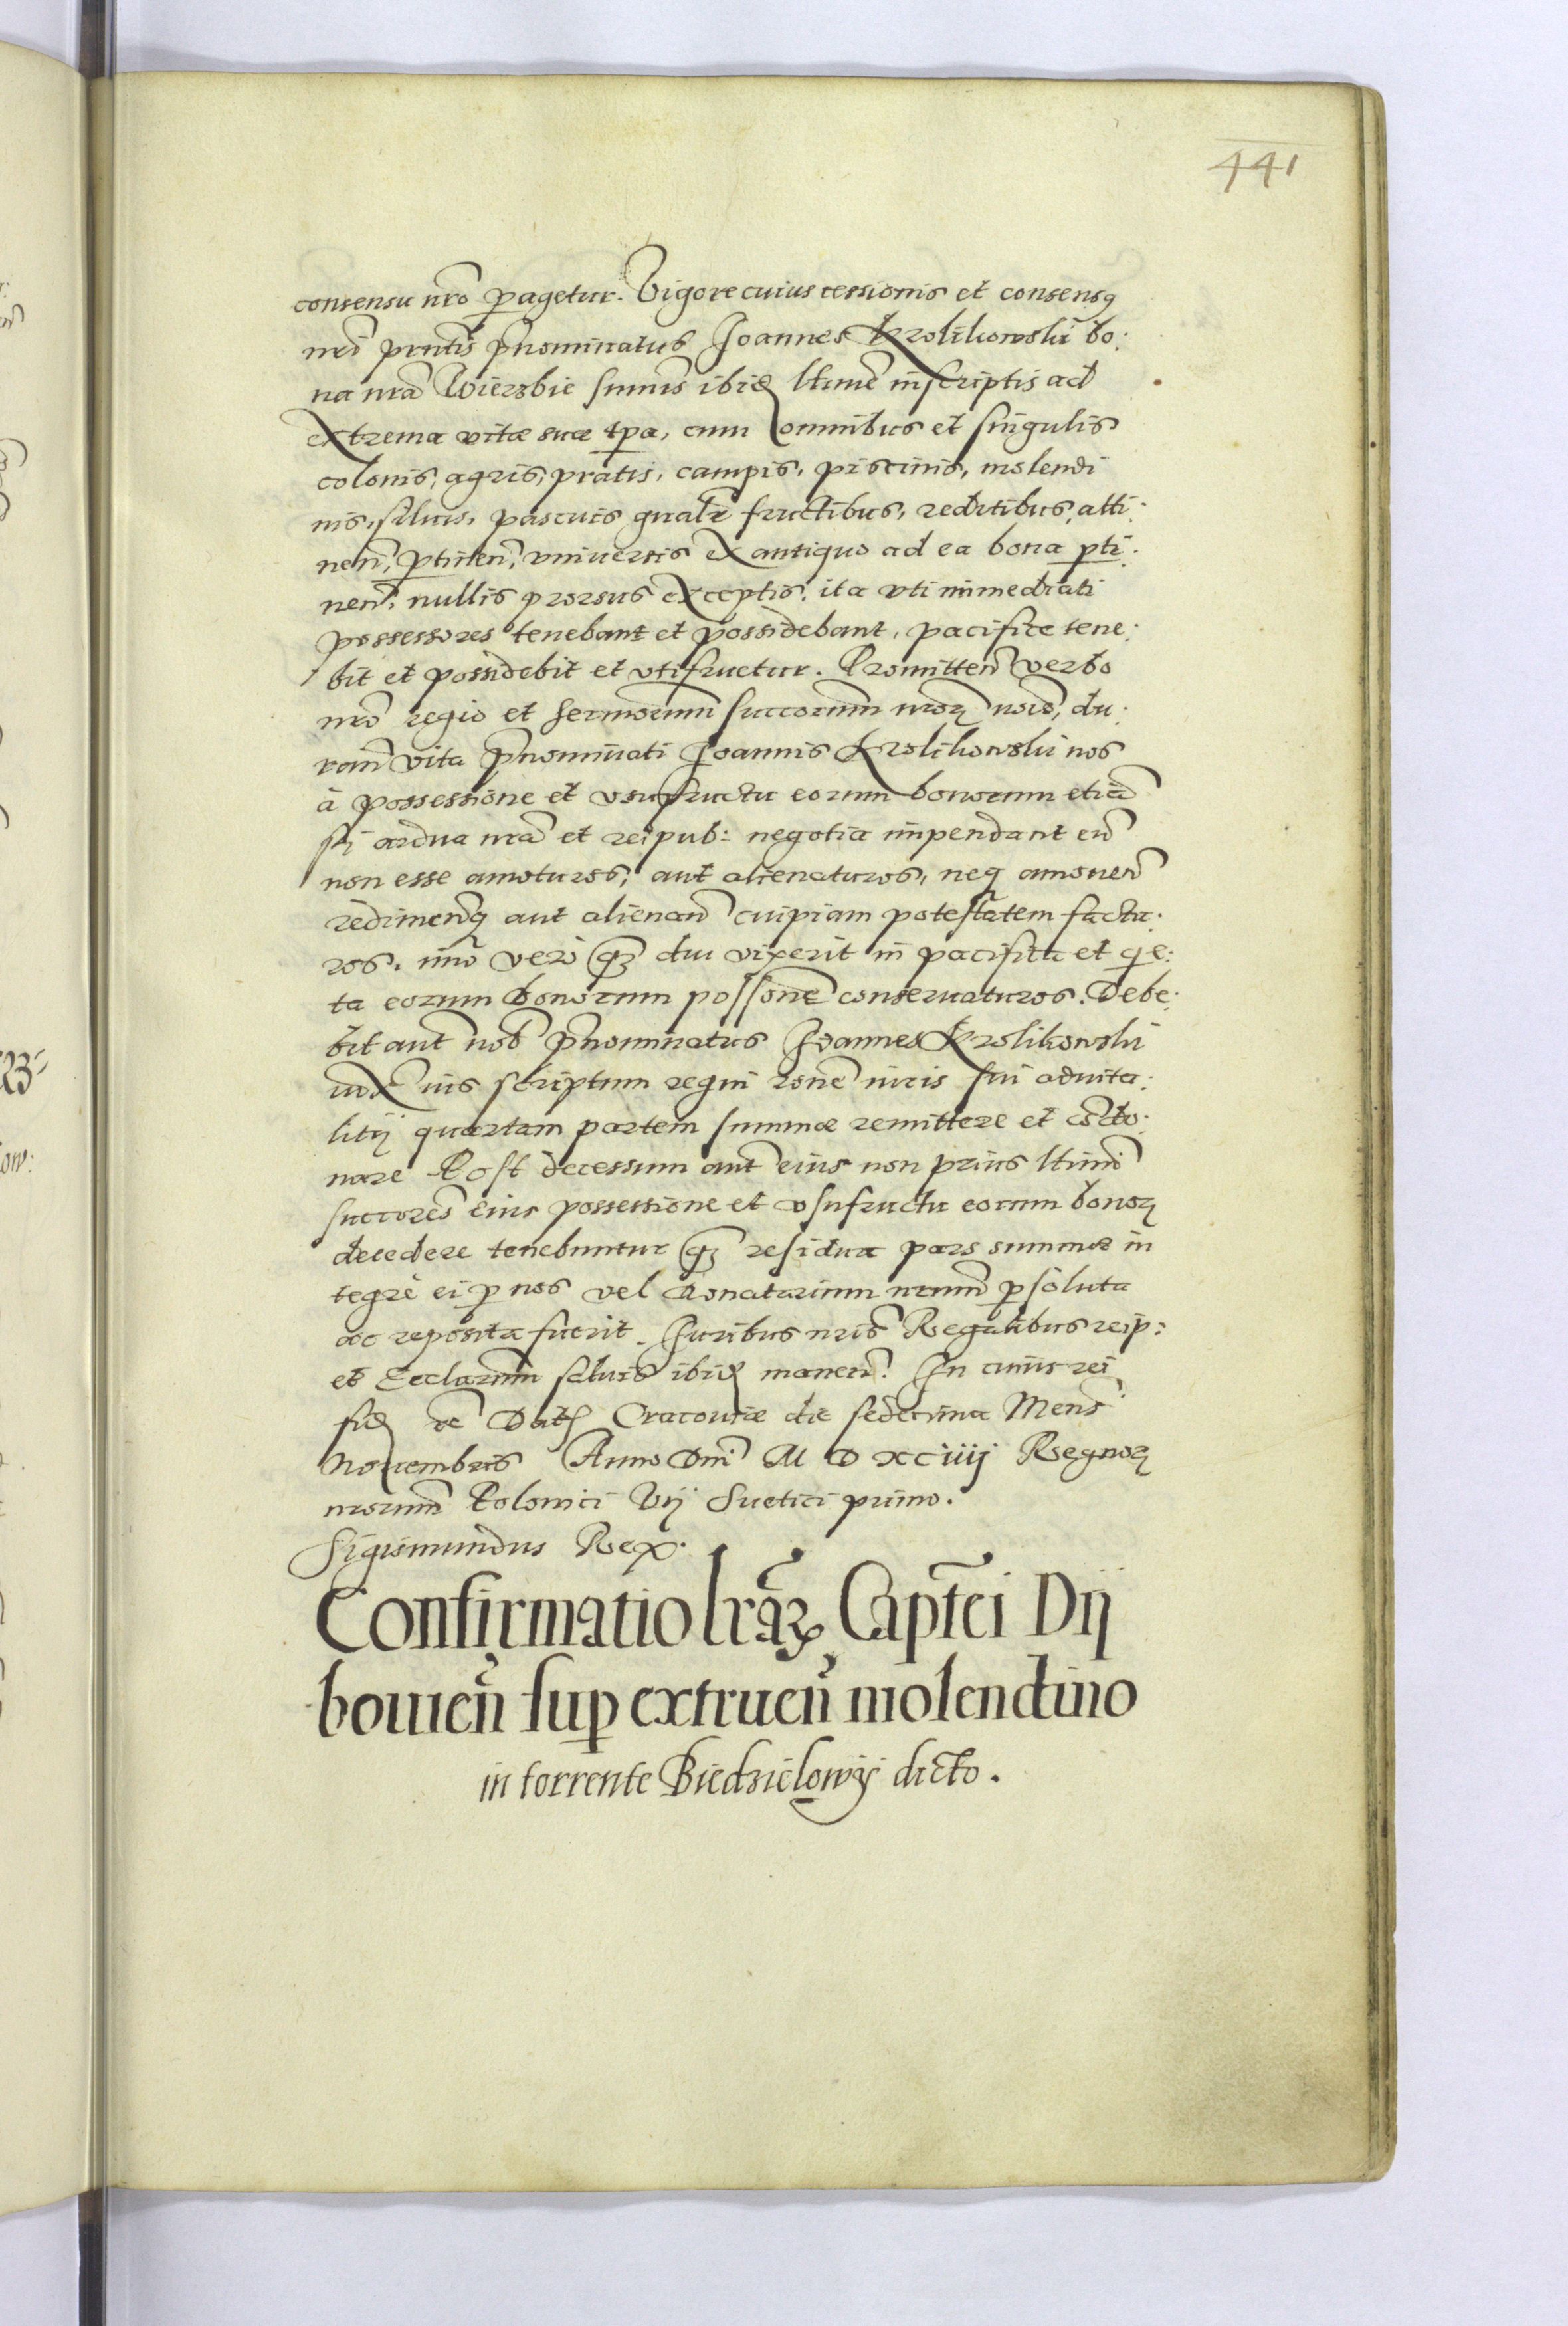 441
consensu nrõ pagetur. Vigore cuius cessionis et consensq
nrĩ pntis pnominatus Joannes Krolikowski bo:
na nrã Wierzbie summis ibidẽ ltime inscriptis ad
extrema vitæ suæ tpa, cum omnibus et singulis
colonis, agris, pratis, campis, piscinis, molendi
nis, siluis, pascuis gnalr fructibus, reditibus, atti:
neñ, ptineñ, vniuersis ex antiquo ad ea bona pti:
neñ, nullis prorsus exceptis. ita vti immediati
possessores tenebant et possidebant, pacifice tene:
bit et possidebit et vtifruetur. Promitteñ verbo
nrõ regio et sermorum succorum nror noiẽ, du:
rañ vita pnominati Joannis Krolikowski nos
à possessione et vsufructu eorum bonorum etiã
si ardua nrã et reipub: negotia impendant eũ
non esse amoturos, aut alienaturos, neq amoueñ
redimenq aut alienañ cuipiam potestatem factu:
ros. imo vero qz diu vixerit in pacifica et qie:
ta eorum bonorum possone conseruaturos. Debe:
bit aut nob pnominatus Joannes Krolikowski
iux ius scriptum regni rone iuris sui aduita:
litij quartam partem summæ remittere et condo:
nare Post decessum aut eius non prius ltimi
succores eius possessione et vsufructu eorum bonor
decedere tenebuntur qz residua pars summæ in
tegrè ei p nos vel donatarium nrum psoluta
ac reposita fuerit. Juribus nris Regalibus reip:
et Ecclarum saluis ibidẽ maneñ. In cuius rei
fidẽ &c Dat Cracouiæ die sedecima Mens
Nouembris Anno Dni M D XCiiij Regnor
nrorum Polonici Vij Suetici primo.
Sigismundus Rex.
Confirmatio lrar Captei Dij
bouień sup extrueñ molendino
in torrente Biedzielowÿ dicto.